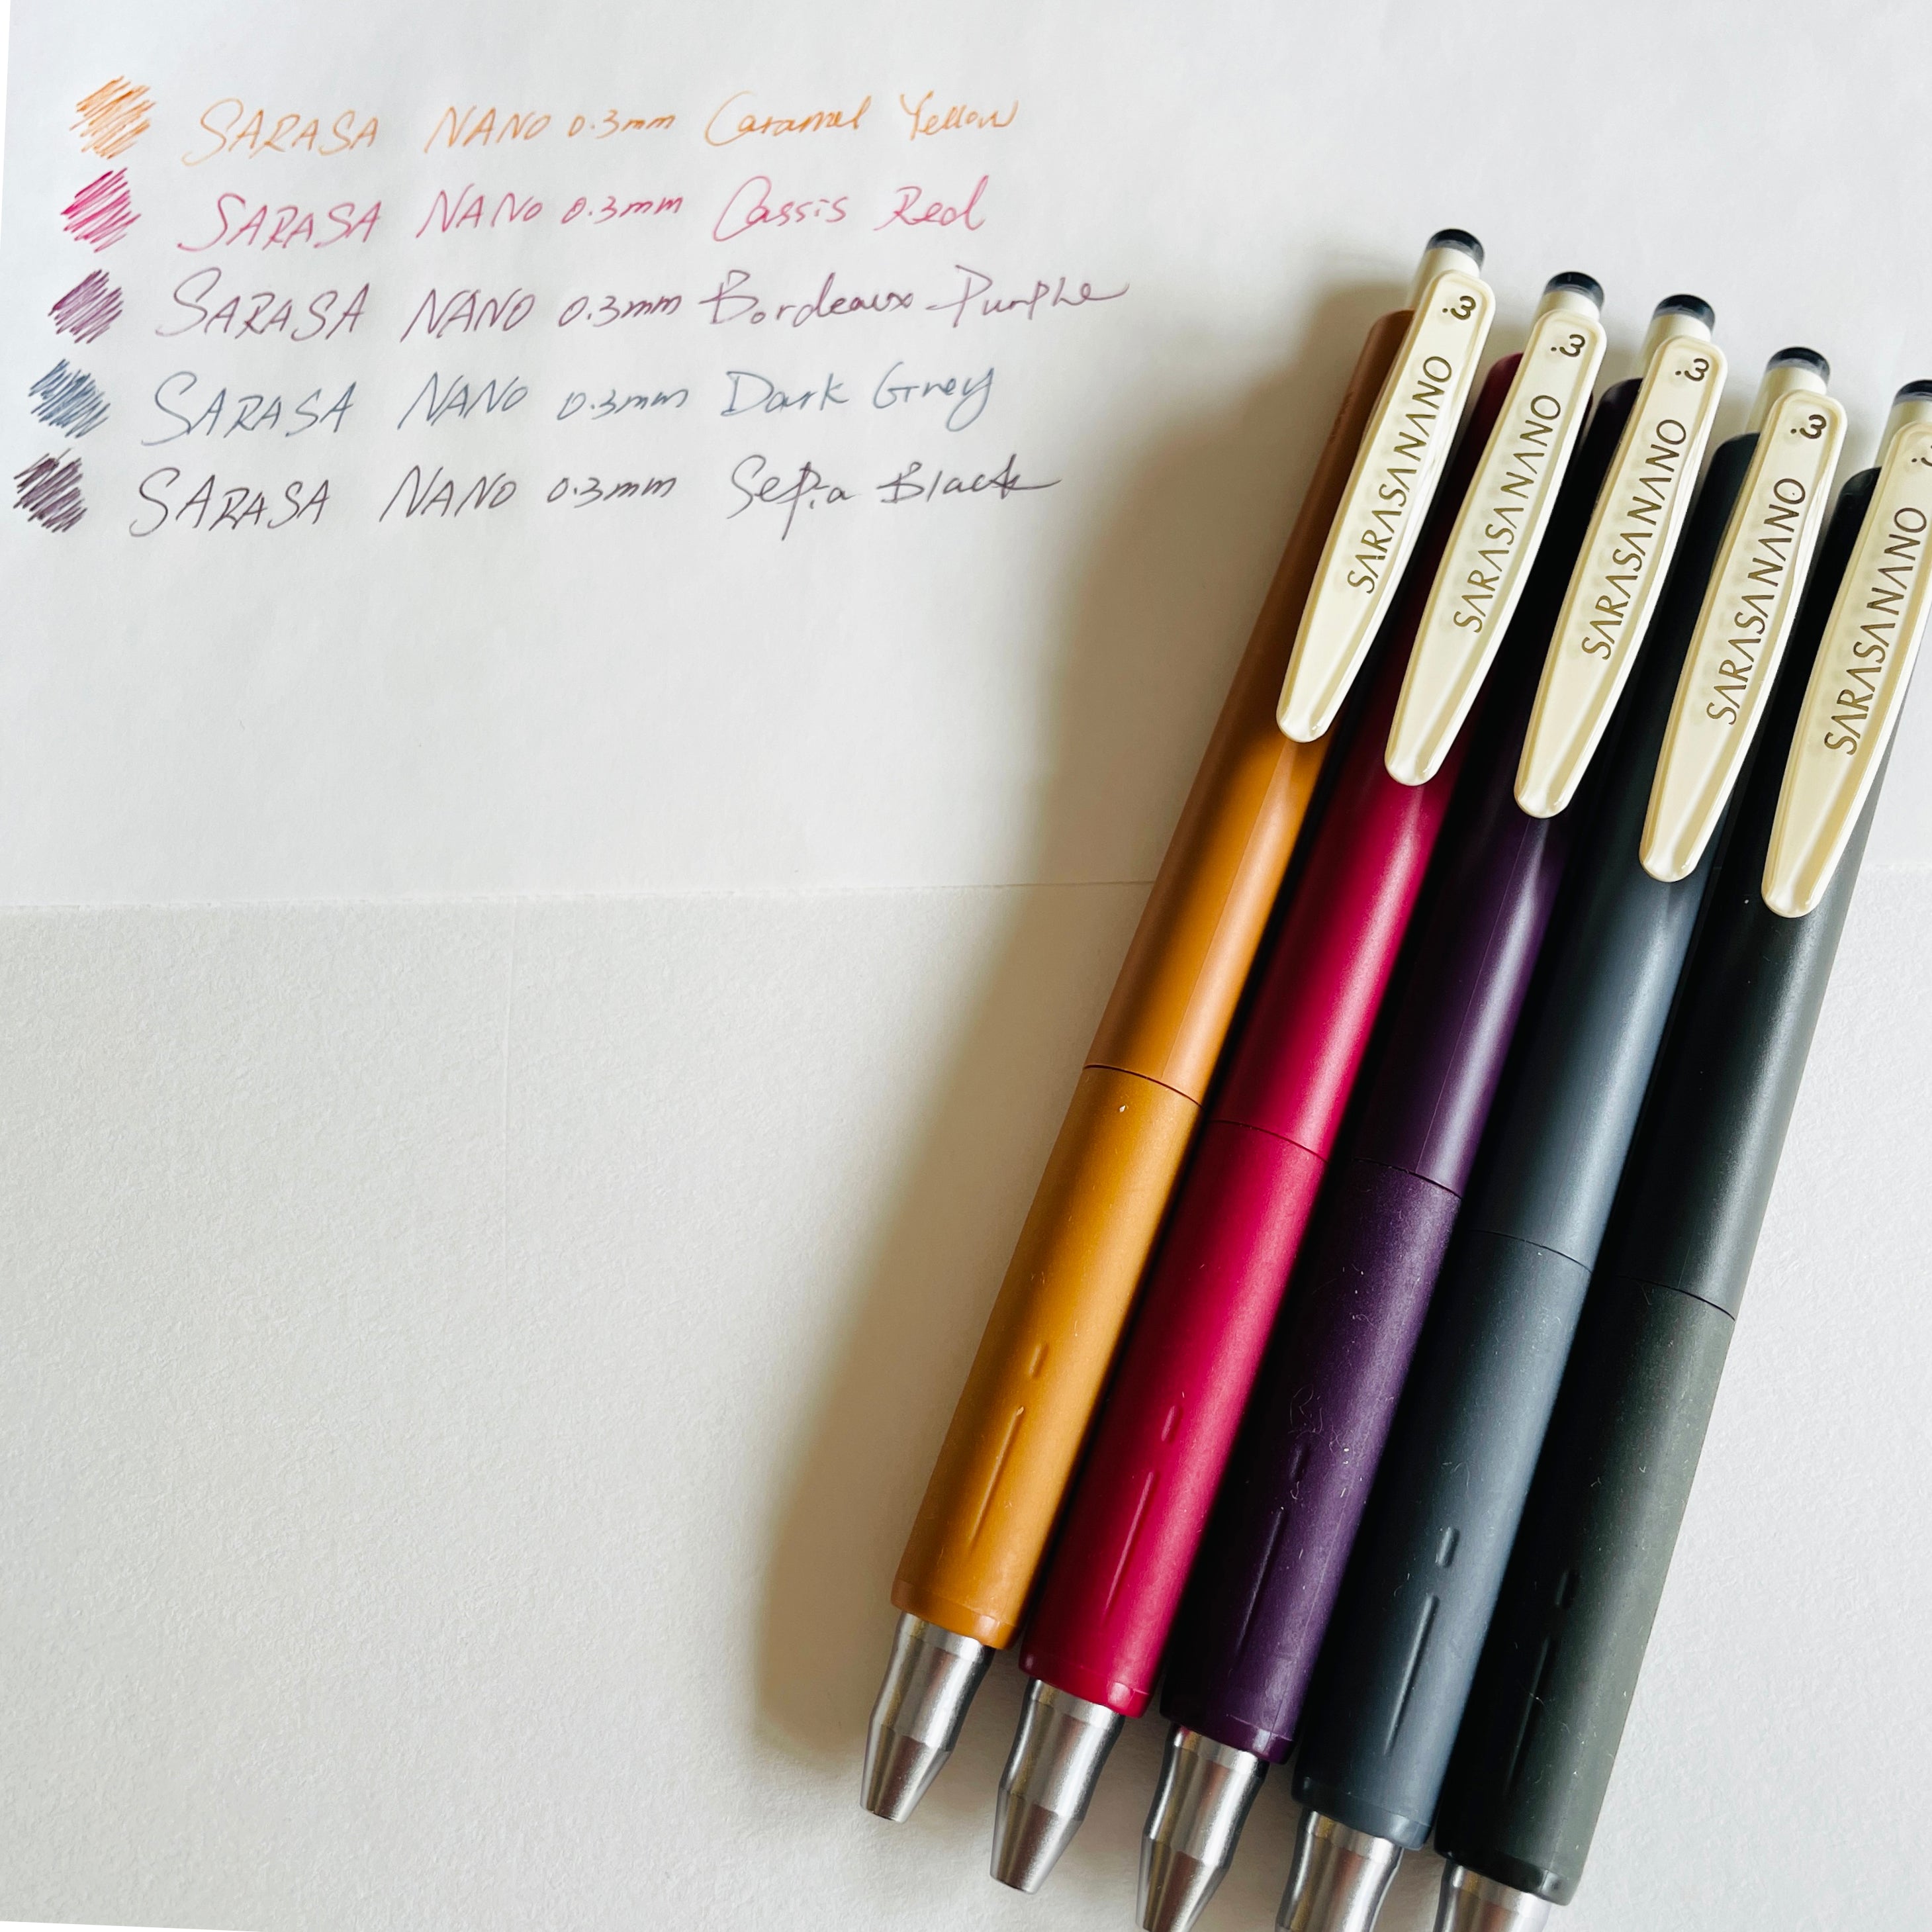 SARASA NANO 0.3mm Caramel Yellow
SARASA NANO 0.3mm Cassis Red
SARASA NANO 0.3mm Bordeaux Purple
SARASA NANO 0.3mm Dark Grey
SARASA NANO 0.3mm Sepia Black
SARASANANO .3
SARASANANO .3
SARASANANO .3
SARASANANO .3
SARASANANO